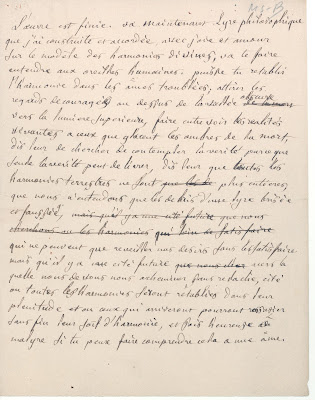 L'œuvre est finie. va maintenant Lyre philosophique
que j'ai construite et accordée avec joie et amour
sur le modèle des harmonies divines, va te faire
entendre aux oreilles humaines. puisses tu rétablir
l'harmonie dans les âmes troublées, attirer les
regards découragés au dessus de la vallée obscure
vers la lumière supérieure, faire entrevoir les réalités
vivantes a ceux que glacent les ombres de la mort,
dis leur de chercher de contempler la vérité parce que
seule la vérité peut délivrer, dis leur que toutes les
harmonies terrestres ne sont plus entières,
que nous n'entendons que les débris d'une lyre brisée
et faussée, mais qu'il y a une cité future que nous
cherchons ou les harmonies qui loin de satisfaire
qui ne peuvent que reveiller nos desirs sans les satisfaire
mais qu'il y a une cité future que nous vers la
quelle nous devons nous acheminer sans relache, cité
ou toutes les harmonies seront retablies dans leur
plenitude et ou ceux qui arriveront pourront
sans fin leur soif d'harmonie, et sois heureuse
ma lyre si tu peux faire comprendre cela a une âme.